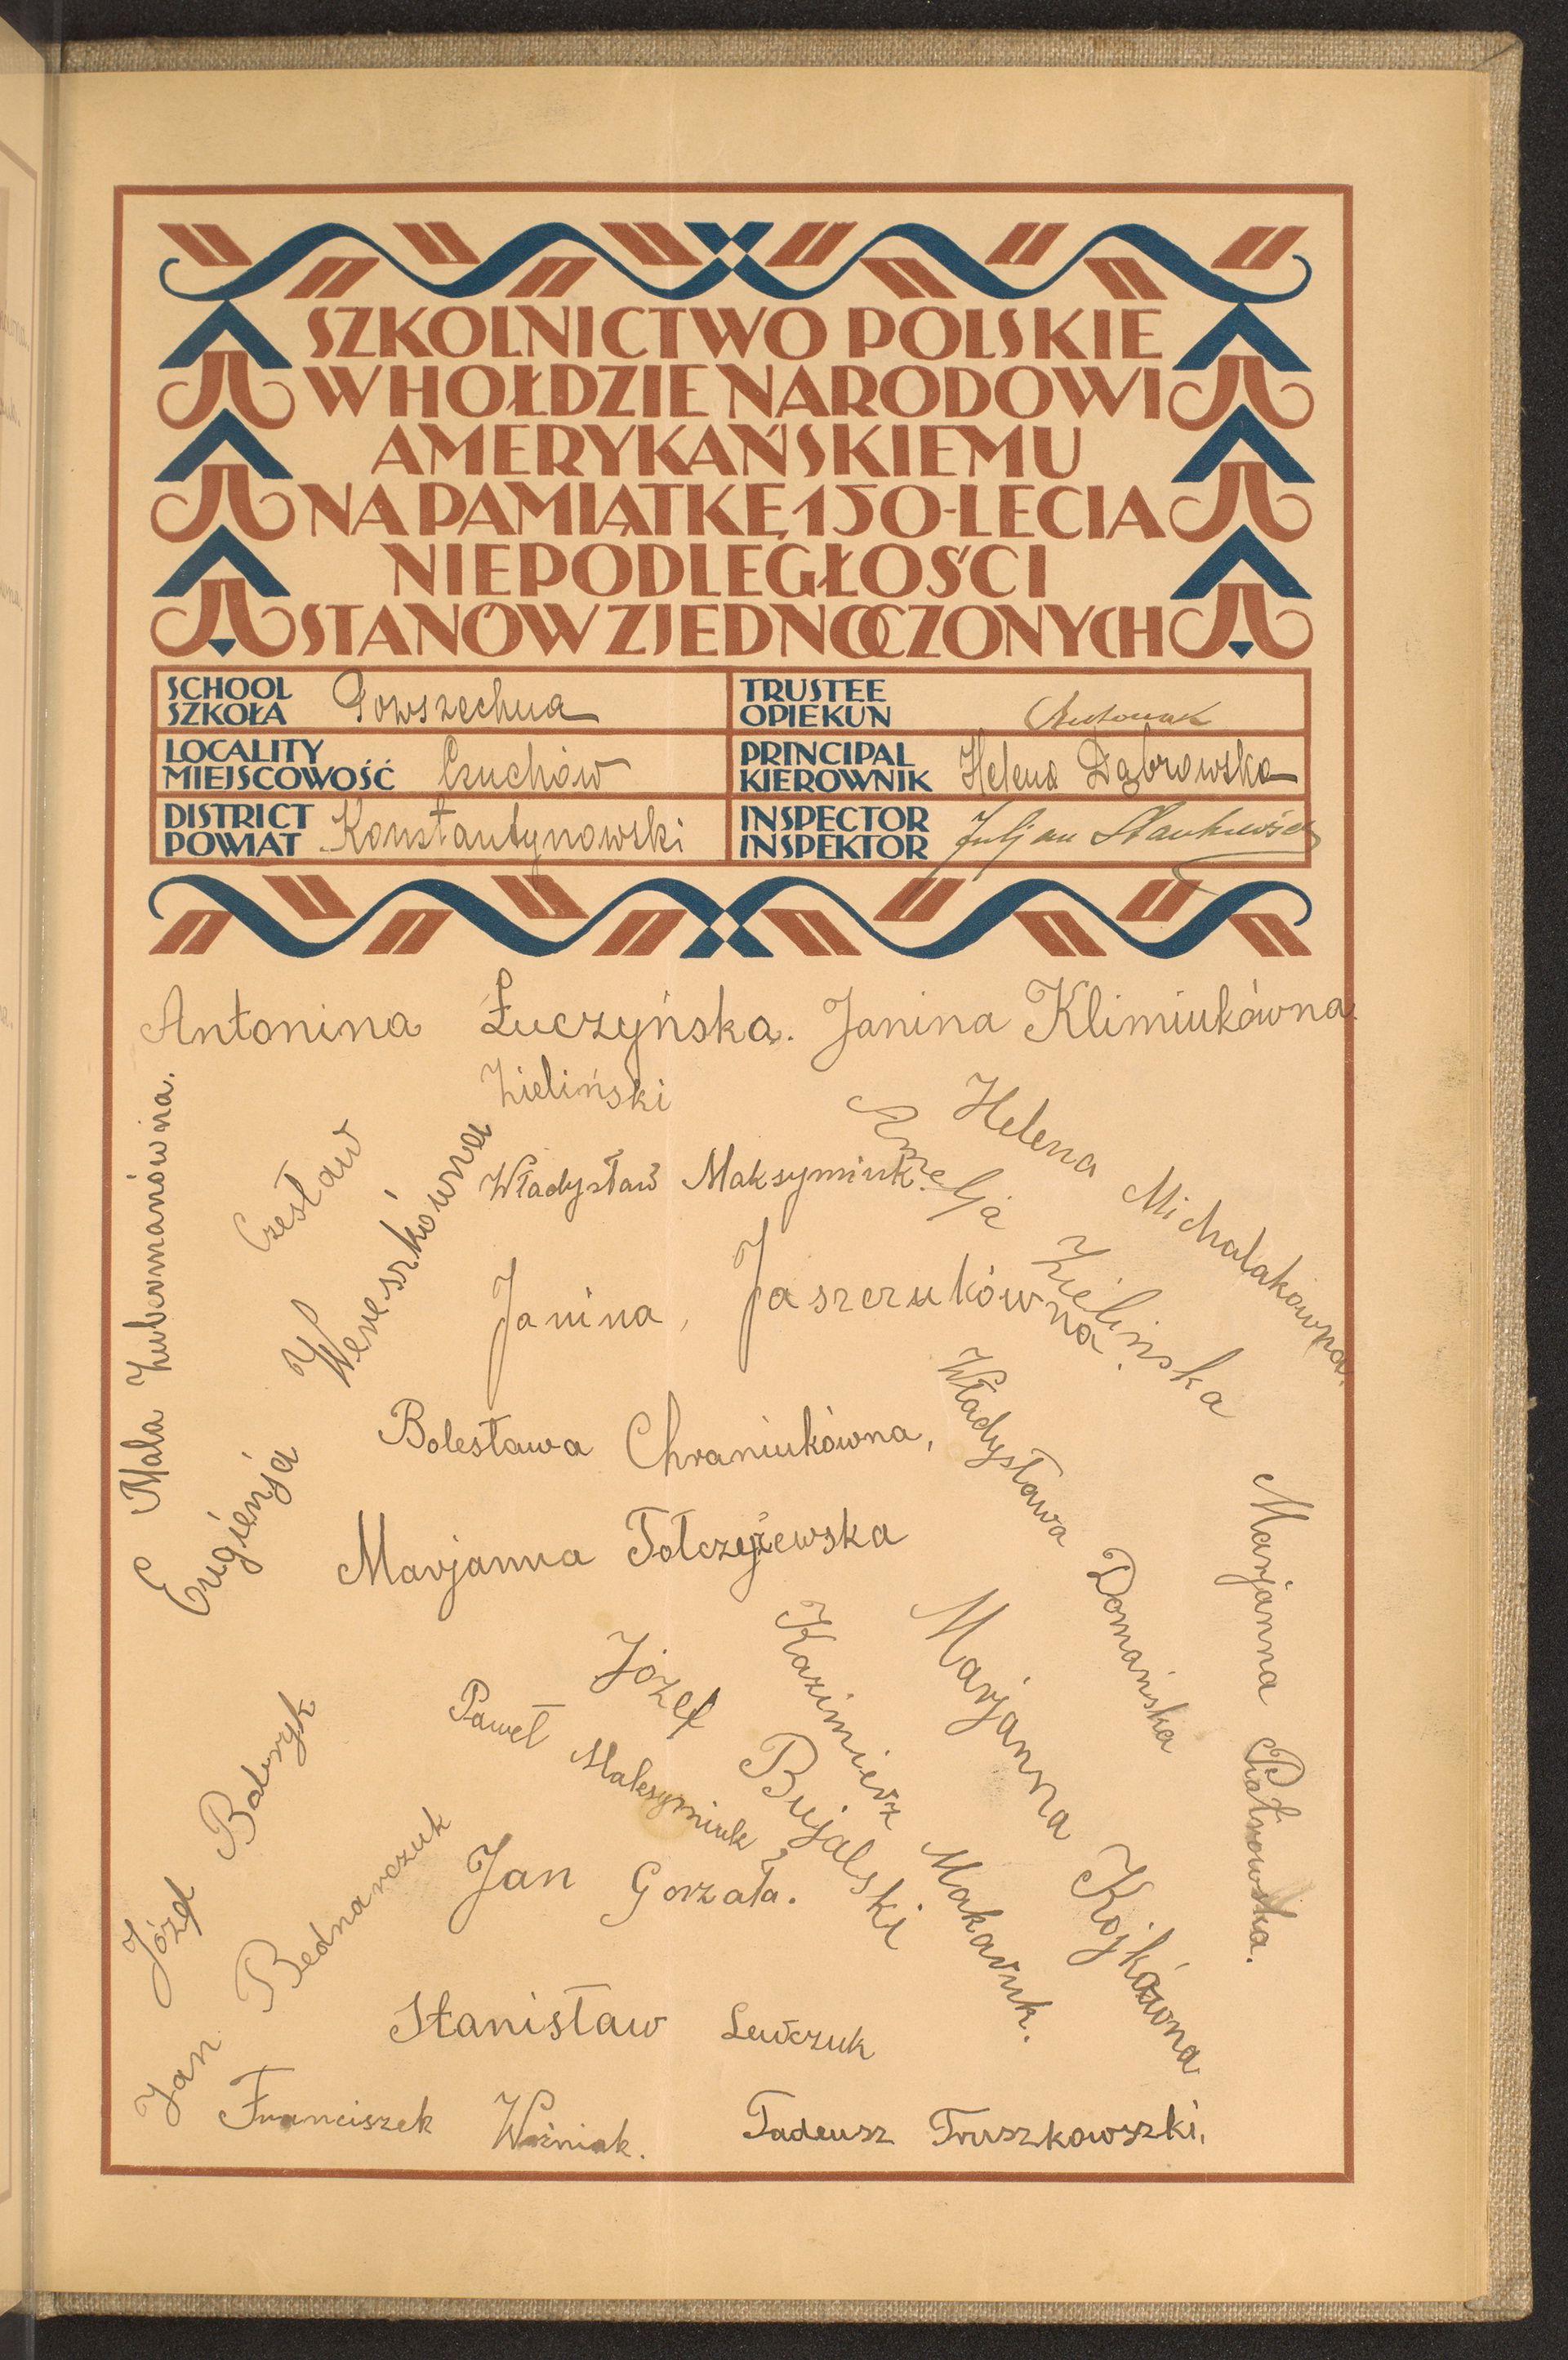 SZKOLNICTWO POLSKIE
W HOŁDZIE NARODOWI
AMERYKAŃSKIEMU
NA PAMIĄTKĘ 150-LECIA
NIEPODLEGŁOŚCI
STANÓW ZJEDNOCZONYCH
SCHOOL
SZKOŁA Powszechna
TRUSTEE
OPIEKUN
LOCALITY
MIEJSCOWOŚĆ Czuchów
PRINCIPAL
KIEROWNIK Helena Dąbrowska
DISTRICT
POWIAT Konstantynowski
INSPECTOR
INSPEKTOR Juljan
Antonina Łuczyńska. Janina Klimiukówna.
Mala Zubermanówna.
Czesław Zieliński
Helena Michalakówna.
Amelja Zielińska
Władysław Maksymiuk.
Eugienja Wereszkówna
Janina, Jaszczukówna.
Bolesława Chraniukówna,
Władysława Domańska
Marjanna
Marjanna Piotrowska.
Józef Bujalski
Kazimierz Makaruk.
Marjanna Kojkówna
Paweł Maksymiuk
Józef
Jan Gorzała.
Jan Bednarczuk
Stanisław Lewczuk
Franciszek Woźniak.
Tadeusz Truszkowszki,